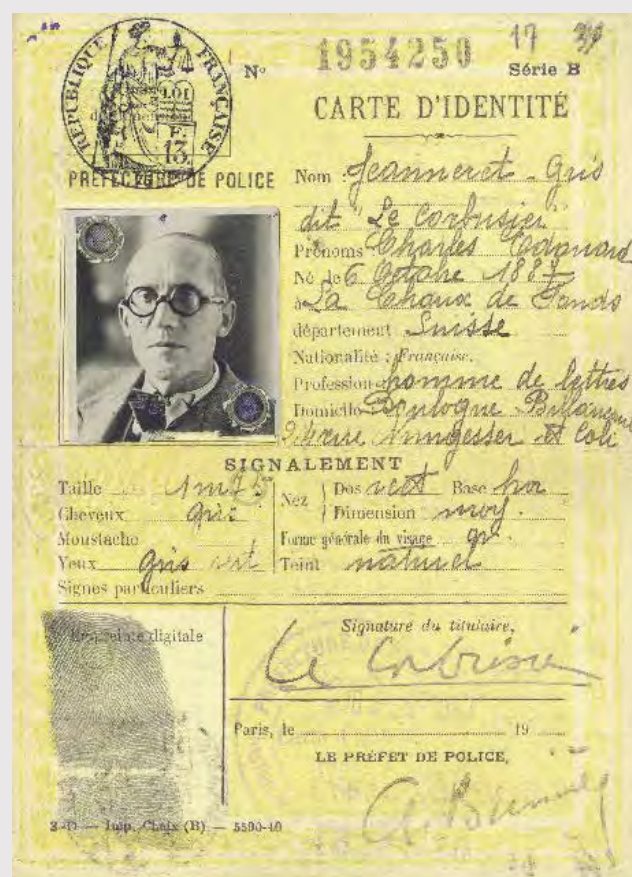 RÉPUBLIQUE FRANÇAISE
13
PRÉFECTURE DE POLICE
No 1954250 17
Série B
CARTE D'IDENTITÉ
Nom : Jeanneret-Gris
dit "Le Corbusier"
Prénoms Charles Edouard
Né le 6 Octobre 1887
à La Chaux de Fonds
département Suisse
Nationalité : Française.
Profession homme de lettres
Domicile Boulogne Billancourt
24 rue Nungesser et Coli
SIGNALEMENT
Taille 1m75
Cheveux gris
Moustache
Yeux gris vert
Signes particuliers
Nez Dos rect Base hor
Dimension moy.
Forme générale du visage
Teint naturel
Empreinte digitale
Signature du titulaire,
Le Corbusier
Paris, le 19
LE PRÉFET DE POLICE,
Imp. Chaix (B) — 5590-40